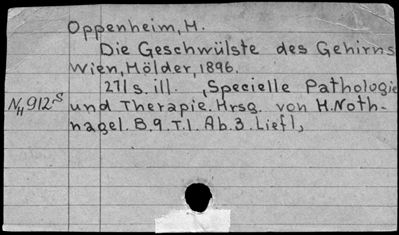 Oppenheim, H.
Die Geschwülste des Gehirns
Wien, Hölder, 1896.
271 s. ill. , Specielle Pathologie
und Therapie. Hrsg. von H. Noth-
nagel. B. 9. T. 1. Ab. 3. Liefl,